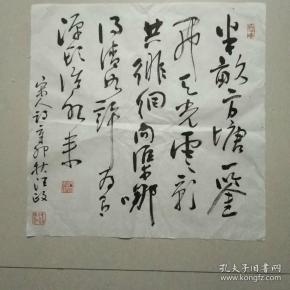 半亩方塘一鉴
开天光云影
共徘徊问渠哪
得清如许为有
源头活水来
宋人诗辛卯秋汪政
孔夫子旧书网